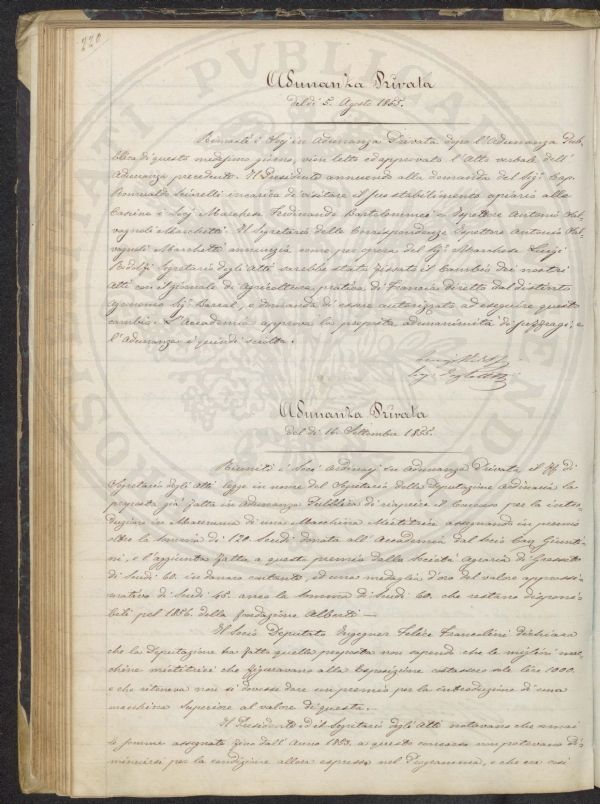 220
Adunanza Privata
del dì 5. Agosto 1855.
Rimasti i Socj in Adunanza Privata dopo l'Adunanza Pub-
blica di questo medesimo giorno, vien letto ed approvato l'Atto verbale dell'
Adunanza precedente. Il Presidente annuendo alla domanda del Sigr. Cap.
Romualdo Sciarelli incarica di visitare il suo stabilimento apiario alle
Cascine i Socj Marchese Ferdinando Bartolommei e Ispettore Antonio Sal-
vagnoli Marchetti. Il Segretario delle Corrispondenze Ispettore Antonio Sal-
vagnoli Marchetti annunzia come per opera del Sigr. Marchese Luigi
Ridolfi Segretario degli Atti sarebbe stato fissato il Cambio dei nostri
Atti con il giornale di Agricoltura pratica di Francia diretto dal distinto
Agronomo Sigr. Barral, e domanda di essere autorizzato ad eseguire questo
cambio. L'Accademia approva la proposta ad unanimità di suffragi, e
l'Adunanza è quindi sciolta.
Adunanza Privata
del dì 16. Settembre 1855.
Riuniti i Socj Ordinarj in Adunanza Privata, il ff. di
Segretario degli Atti legge in nome del Segretario della Deputazione Ordinaria la
proposta già fatta in Adunanza Pubblica di riaprire il Concorso per la intro-
duzione in Maremma di una Macchina Mietitrice assegnando in premio
oltre la somma di 120 Scudi donata all'Accademia dal Socio Cav.
e l'aggiunta fatta a questo premio dalla Società Agraria di Grosseto
di Scudi 60. in danaro contante, ed una medaglia d'oro del valore approssi-
mativo di Scudi 45. anco la somma di Scudi 60. che restano disponi-
bili pel 1856. della fondazione Alberti —
Il Socio Deputato Ingegner Felice Francolini dichiara
che la Deputazione ha fatto questa proposta non sapendo che le migliori mac-
chine mietitrici che figuravano alla Esposizione costassero sole lire 1000.
e che riteneva non si dovesse dare un premio per la introduzione di una
macchina superiore al valore di questa.
Il Presidente ed il Segretario degli Atti notavano che ormai
le somme assegnate fino dall'Anno 1853. a questo concorso non potevano di-
minuirsi per la condizione allora espressa nel Programma, e che era così